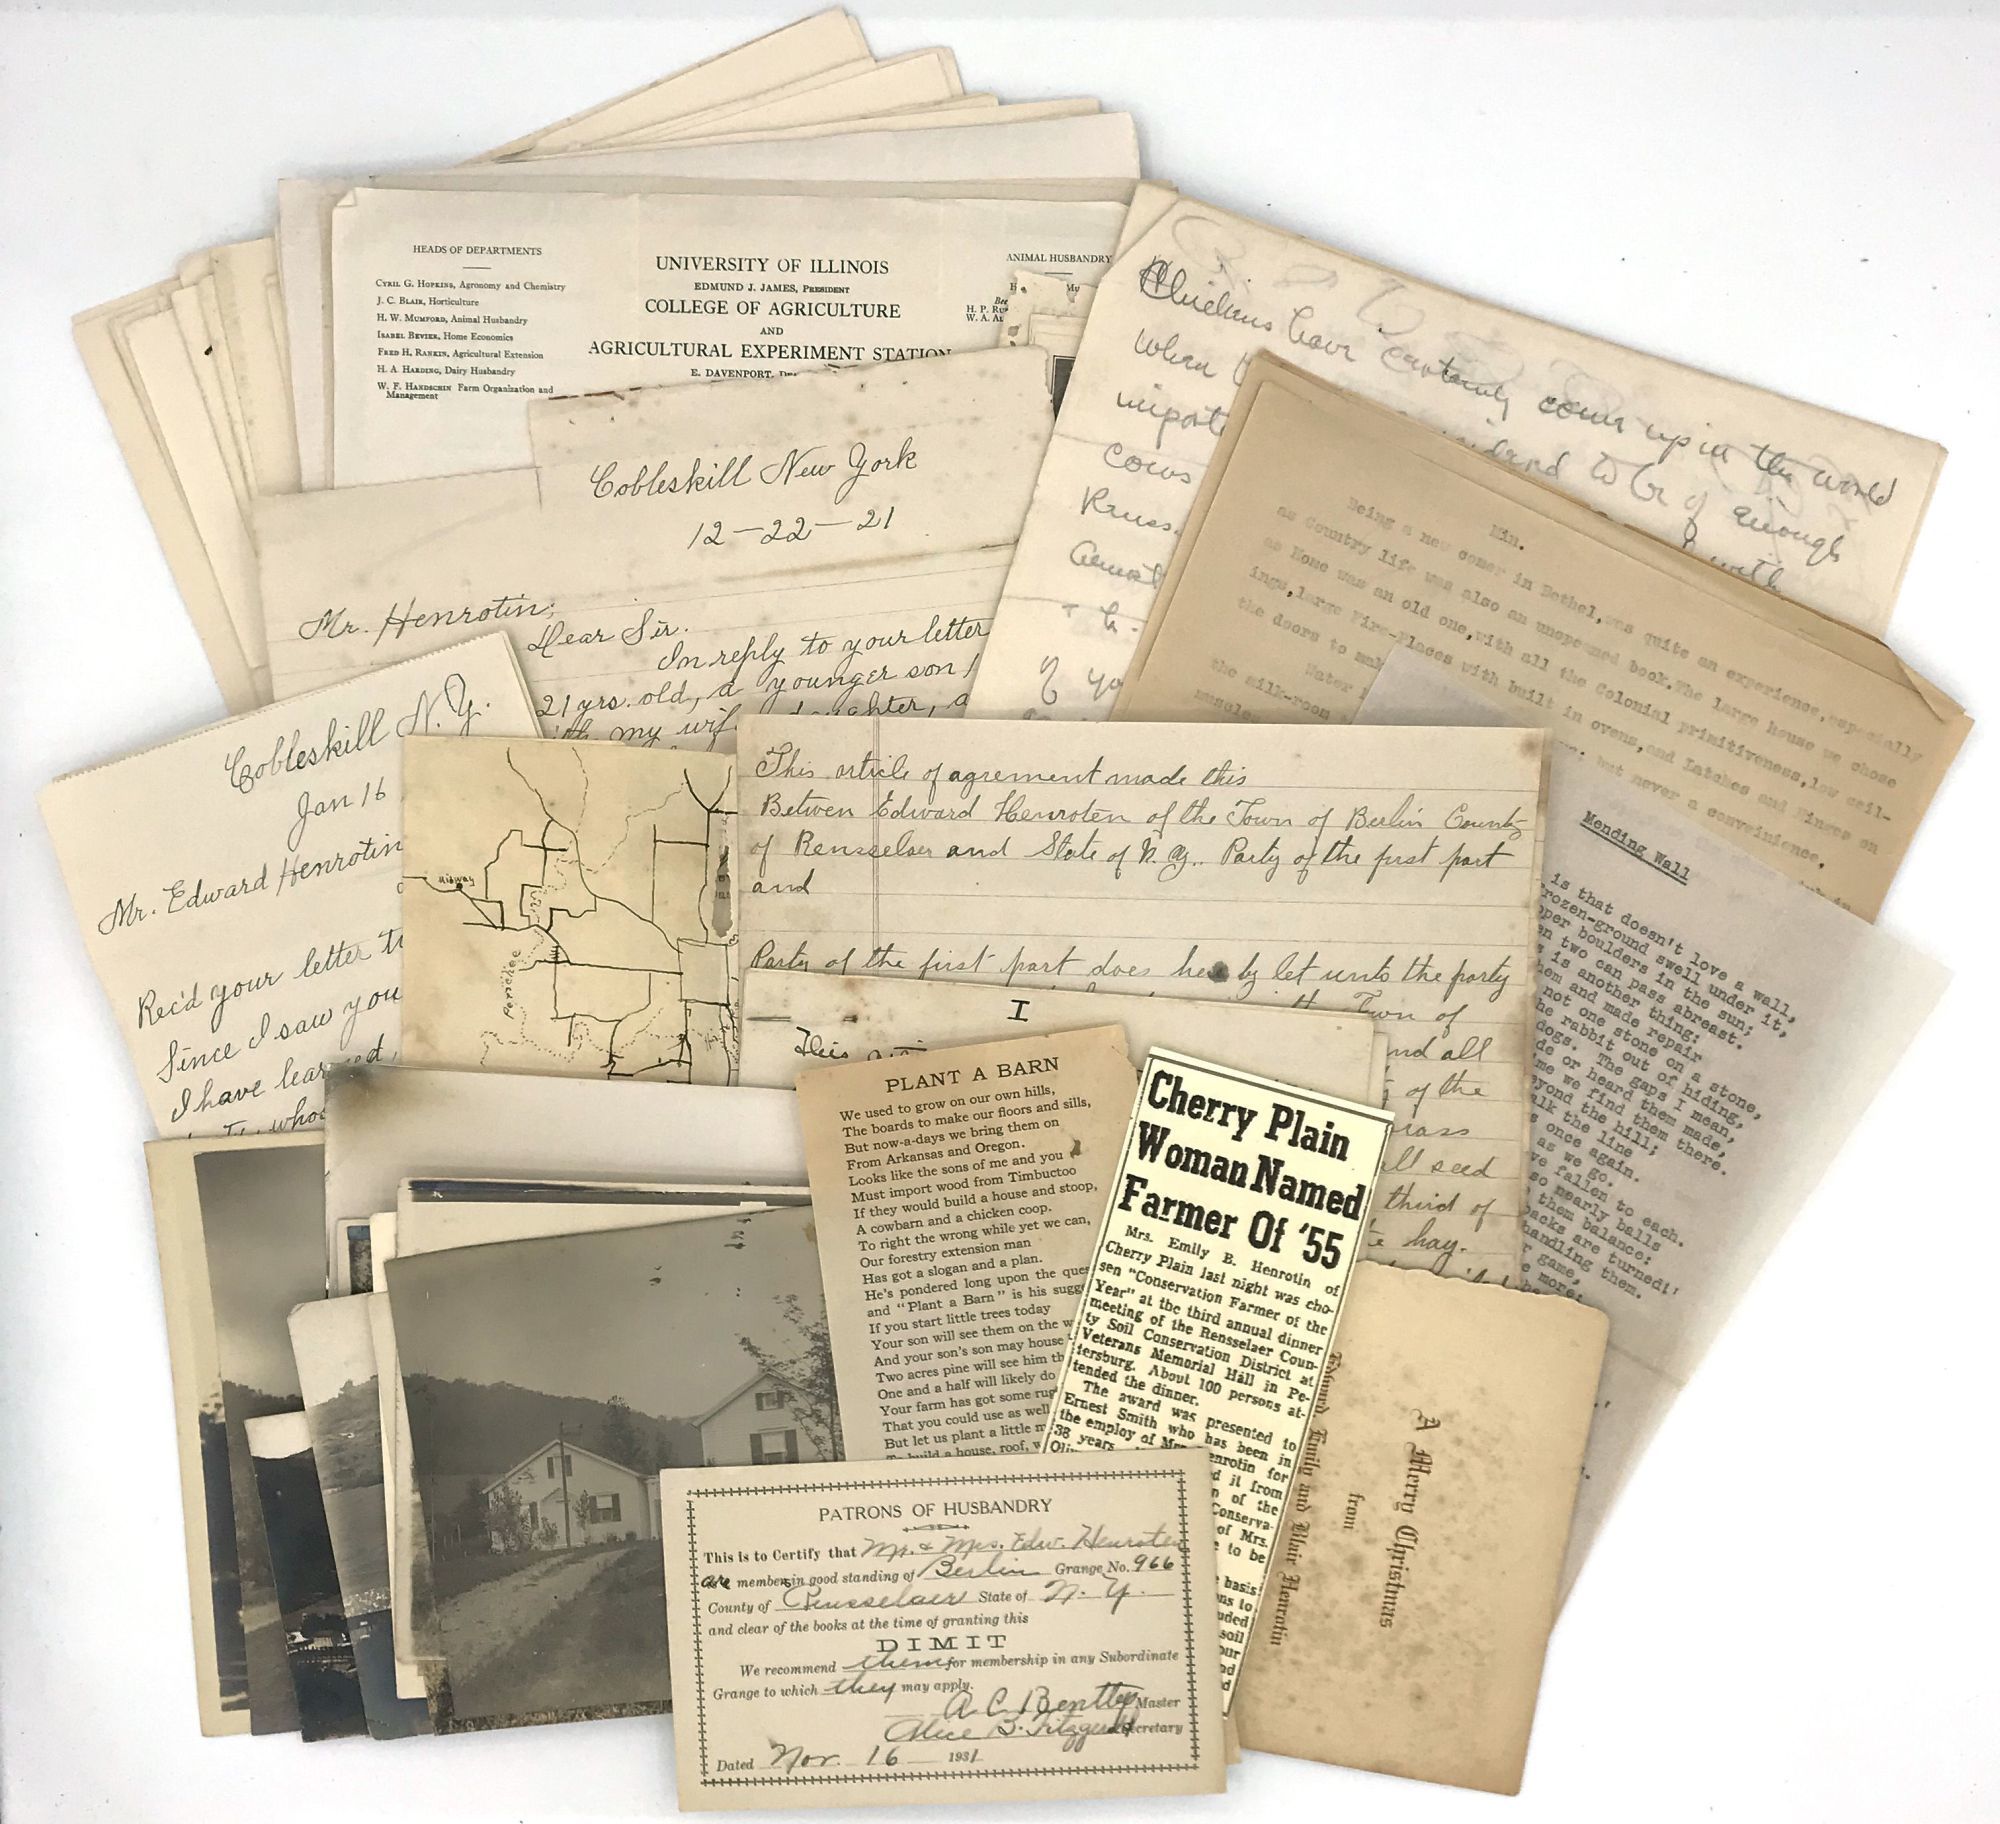 HEADS OF DEPARTMENTS
CYRIL G. HOPKINS, Agronomy and Chemistry
J. C. BLAIR, Horticulture
H. W. MUMFORD, Animal Husbandry
ISABEL BEVIER, Home Economics
FRED H. RANKIN, Agricultural Extension
H. A. HARDING, Dairy Husbandry
W. F. HANDSCHIN Farm Organization and
Management
UNIVERSITY OF ILLINOIS
EDMUND J. JAMES, PRESIDENT
COLLEGE OF AGRICULTURE
AND
AGRICULTURAL EXPERIMENT STATION
E. DAVENPORT,
ANIMAL HUSBANDRY
H. P.
W. A.
Chickens have certainly come up in the world
when
to be of enough
import
cows
with
of yo
Cobleskill New York
12-22-21
Mr. Henrotin;
Dear Sir.
In reply to your letter
21 yrs. old, a younger son
my wife daughter, a
Cobleskill N.Y.
Jan 16
Mr. Edward Henrotin
Rec'd your letter
Since I saw you
I have learned,
Min.
Being a new comer in Bethel, was quite an experience, especially
as Country life was also an unopened book. The large house we chose
as Home was an old one, with all the Colonial primitiveness, low ceil-
ings, large Fire-Places with built in ovens, and Latches and Hinges on
the doors to
Water
but never a conveinience.
the milk-room
muscle
Midway
This article of agrement made this
Betwen Edward Henroten of the Town of Berlin County
of Rensselaer and State of N.Y. Party of the first part
and
Party of the first part does here by let unto the party
Town of
and all
of the
seed
third of
hay.
I
This
Mending Wall
is that doesn't love a wall,
frozen-ground swell under it,
boulders in the sun;
two can pass abreast.
is another thing:
and made repair
not one stone on a stone,
the rabbit out of hiding,
dogs. The gaps I mean,
or hear them made,
we find them there.
beyond the hill;
the line
once again.
as we go.
fallen to each.
so nearly balls
them balance:
backs are turned!'
handling them.
game,
more:
PLANT A BARN
We used to grow on our own hills,
The boards to make our floors and sills,
But now-a-days we bring them on
From Arkansas and Oregon.
Looks like the sons of me and you
Must import wood from Timbuctoo
If they would build a house and stoop,
A cowbarn and a chicken coop.
To right the wrong while yet we can,
Our forestry extension man
Has got a slogan and a plan.
He's pondered long upon the
and "Plant a Barn" is his
If you start little trees today
Your son will see them on the
And your son's son may house
Two acres pine will see him
One and a half will likely do
Your farm has got some
That you could use as well
But let us plant a little
build a house, roof,
Cherry Plain
Woman Named
Farmer Of '55
Mrs. Emily B. Henrotin of
Cherry Plain last night was cho-
sen "Conservation Farmer of the
Year" at the third annual dinner
meeting of the Rensselaer Coun-
ty Soil Conservation District at
Veterans Memorial Hall in Pe-
tersburg. About 100 persons at-
tended the dinner.
The award was presented to
Ernest Smith who has been in
the employ of Mrs. Henrotin for
38 years
it from
of the
Conserva-
of Mrs.
to be
basis
to
soil
A Merry Christmas
from
Edward Emily and Blair Henrotin
PATRONS OF HUSBANDRY
This is to Certify that Mr. & Mrs. Edw. Henroten
are members in good standing of Berlin Grange No. 966
County of Rensselaer State of N. Y.
and clear of the books at the time of granting this
DIMIT
We recommend them for membership in any Subordinate
Grange to which they may apply.
A. C. Bentley Master
Alice B. Fitzgerald Secretary
Dated Nov. 16 1931